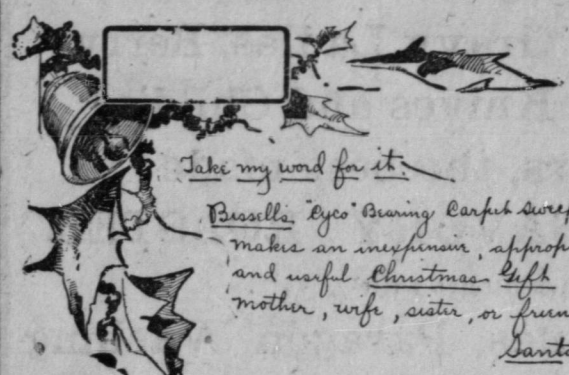 Take my word for it.
Bissell's "Cyco" Bearing Carpet Sweep
makes an inexpensive, approp
and useful Christmas Gift
mother, wife, sister, or frien
Santa